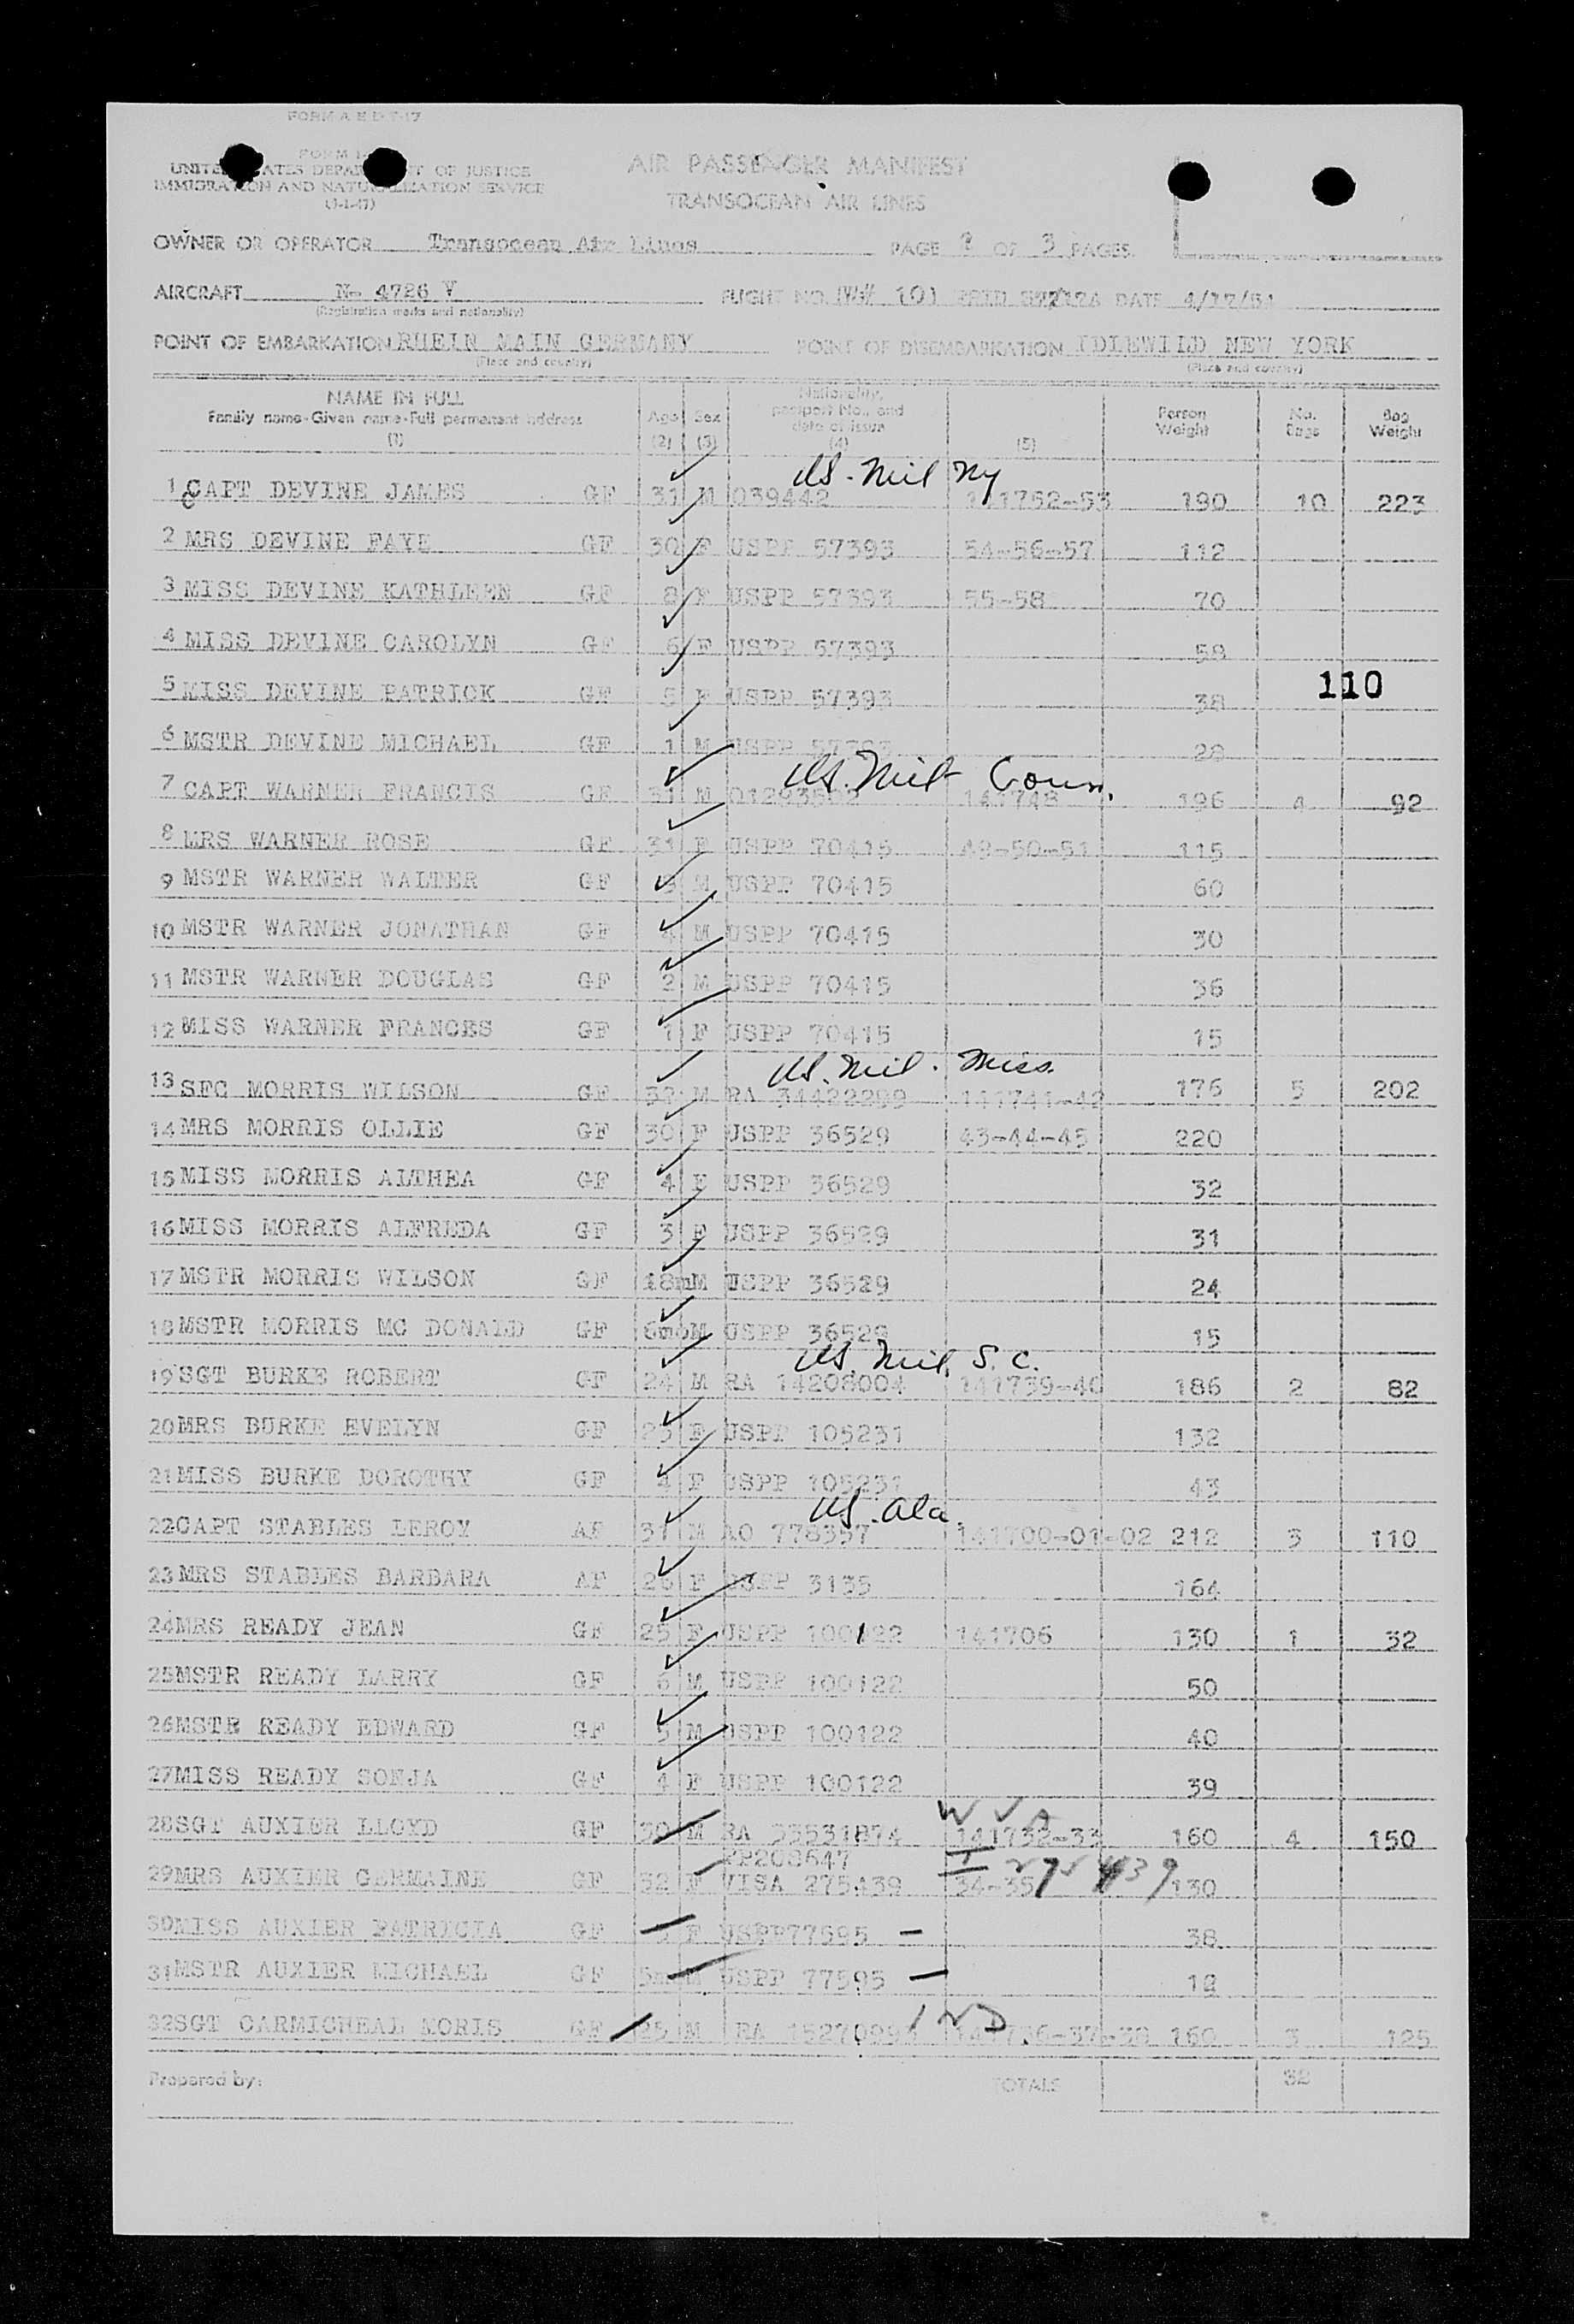 FORM A E D T-17
FORM I-
UNITED STATES DEPARTMENT OF JUSTICE
IMMIGRATION AND NATURALIZATION SERVICE
(1-1-47)
AIR PASSENGER MANIFEST
TRANSOCEAN AIR LINES
OWNER OR OPERATOR Transocean Air Lines PAGE 2 OF 3 PAGES
AIRCRAFT N- 4726 V FLIGHT NO. 101 DATE 4/17/51
(Registration marks and nationality)
POINT OF EMBARKATION RHEIN MAIN GERMANY POINT OF DISEMBARKATION IDLEWILD NEW YORK
(Place and country) (Place and country)
NAME IN FULL Family name-Given name-Full permanent address (1) Age (2) Sex (3) Nationality, passport No., and date of issue (4) (5) Person Weight No. Bags Bag Weight
US. Mil NY
1 CAPT DEVINE JAMES GF 31 M 039442 141752-53 190 10 223
2 MRS DEVINE FAYE GF 30 F USPP 57393 54-56-57 112
3 MISS DEVINE KATHLEEN GF 8 F USPP 57393 55-58 70
4 MISS DEVINE CAROLYN GF 6 F USPP 57393 58
5 MISS DEVINE PATRICK GF 5 F USPP 57393 38
110
6 MSTR DEVINE MICHAEL GF 1 M USPP 57393 20
US. Mil Conn.
7 CAPT WARNER FRANCIS GF 31 M 141748 196 4 92
8 MRS WARNER ROSE GF 31 F USPP 70415 49-50-51 115
9 MSTR WARNER WALTER GF 5 M USPP 70415 60
10 MSTR WARNER JONATHAN GF 4 M USPP 70415 30
11 MSTR WARNER DOUGLAS GF 2 M USPP 70415 36
12 MISS WARNER FRANCES GF 1 F USPP 70415 15
US. Mil. Miss.
13 SFC MORRIS WILSON GF M RA 34422299 141741-42 176 5 202
14 MRS MORRIS OLLIE GF 30 F USPP 36529 43-44-45 220
15 MISS MORRIS ALTHEA GF 4 F USPP 36529 32
16 MISS MORRIS ALFREDA GF 3 F USPP 36529 31
17 MSTR MORRIS WILSON GF 18m M USPP 36529 24
18 MSTR MORRIS MC DONALD GF 6mo M USPP 36529 15
US. Mil. S. C.
19 SGT BURKE ROBERT GF 24 M RA 14208004 141739-40 186 2 82
20 MRS BURKE EVELYN GF 23 F USPP 105231 132
21 MISS BURKE DOROTHY GF 4 F USPP 105231 43
US. Ala.
22 CAPT STABLES LEROY AF 31 M AO 778357 141700-01-02 212 3 110
23 MRS STABLES BARBARA AF 26 F USPP 3135 164
24 MRS READY JEAN GF 25 F USPP 100122 141706 130 1 32
25 MSTR READY LARRY GF 6 M USPP 100122 50
26 MSTR READY EDWARD GF 5 M USPP 100122 40
27 MISS READY SONJA GF 4 F USPP 100122 39
W VA
28 SGT AUXIER LLOYD GF 30 M RA 33531874 141732-33 160 4 150
PP208647
29 MRS AUXIER GERMAINE GF 32 F VISA 275439 34-35 130
30 MISS AUXIER PATRICIA GF 3 F USPP77595 — 38
31 MSTR AUXIER MICHAEL GF 5m M USPP 77595 — 18
IND
32 SGT CARMICHEAL MORIS GF 25 M RA 141736-37-38 160 3 125
Prepared by: TOTALS 32